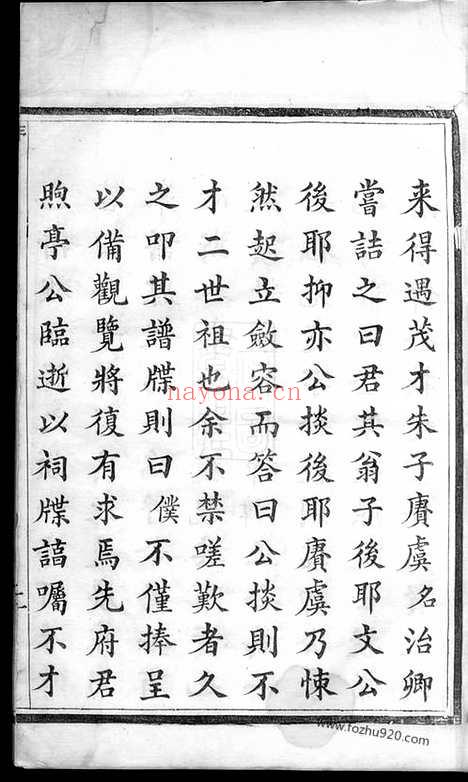 来得遇茂才朱子賡虞名治卿
嘗詰之曰君其翁子後耶文公
後耶抑亦公掞後耶賡虞乃悚
然起立斂容而答曰公掞則不
才二世祖也余不禁嗟歎者久
之叩其譜牒則曰僕不僅捧呈
以備觀覽將復有求焉先府君
煦亭公臨逝以祠牒諄囑不才
nayona.cn
www.fozhu920.com